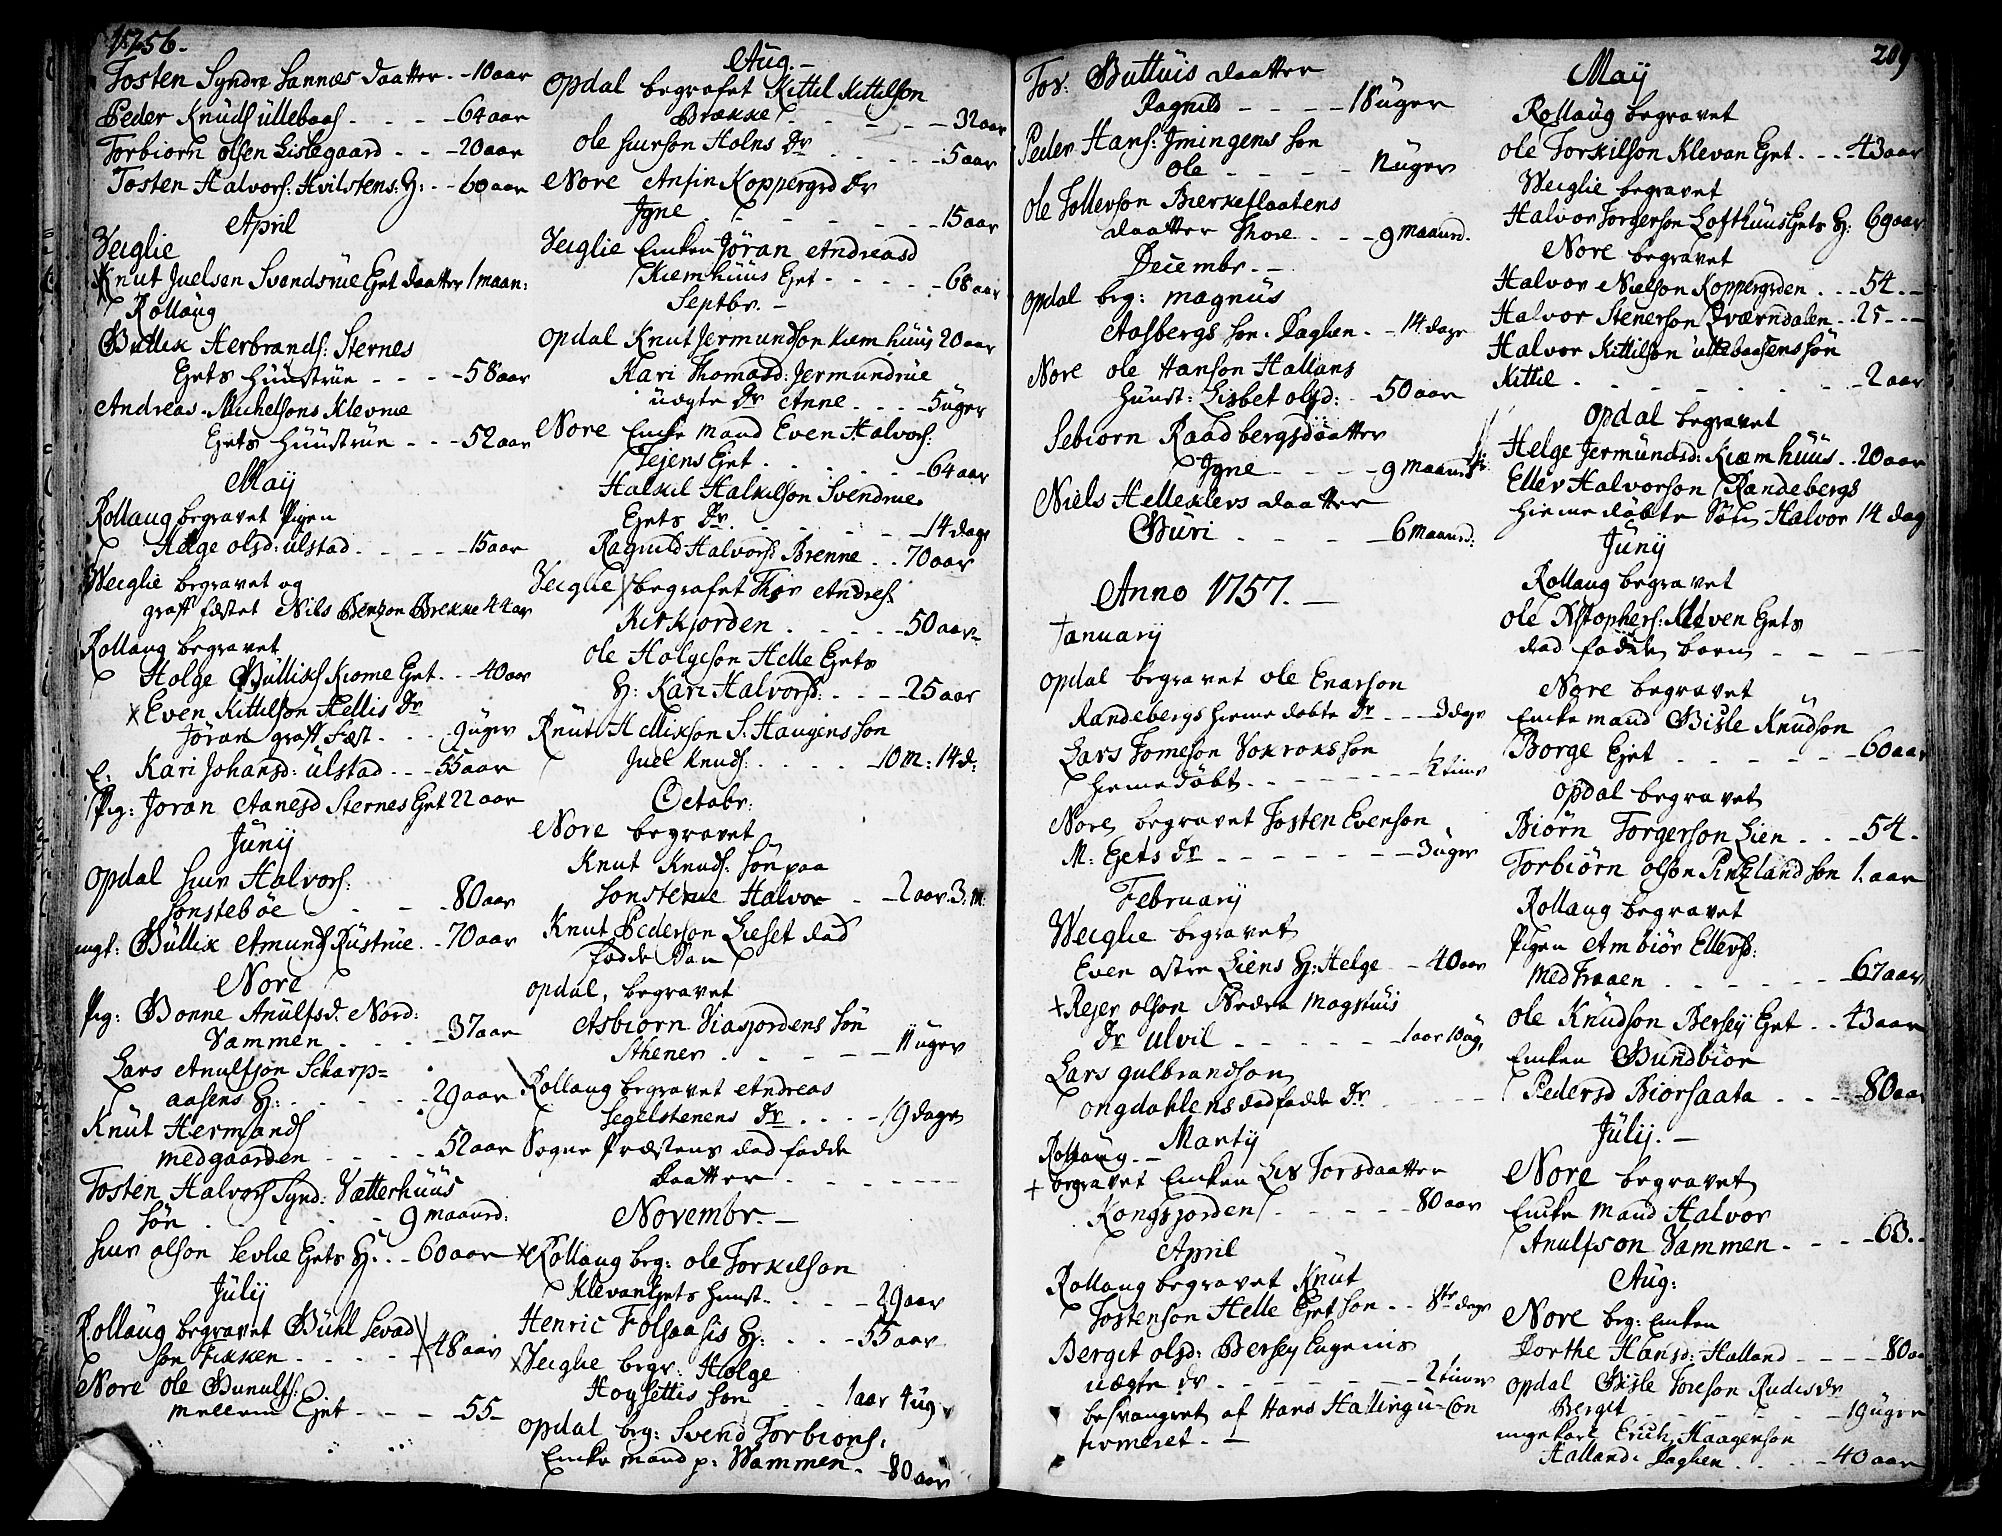 1756.
Tosten Syndre Sannes daatter. - 10 aar
Peder Knuds Ullebaas - - - - 64 aar
Torbiorn Olsen Lislegaard - - - 20 aar
Tosten Halvors: Hvilstens: H: - - 60 aar
April
Veiglie
Knut Juelsen Svendsrue Eget daatter 1 maan:
Rollaug
Bullik Herbrands: Sternes
Eyets Huustrue - - - - 58 aar
Andreas Michelsons Klevne
Eyets Huustrue - - - 52 aar
May
Rollaug begravet Pigen
Helge olsd: ulstad - - - - - 15 aar
Weiglie begravet og
graft fæstet Nils Benzon Brekke 44 aar
Rollaug begravet
Holge Bulliks Kiome Eyet. - - 40 aar
x Even Kittilson Hellis Dr
Joran graft fæst - - - 9 uger
E: Kari Johansd: ulstad - - - 55 aar
Pig: Joran Aanesd Sternes Eyet 22 aar
Juny
opdal Siur Halvors:
Sonsteböe - - - - 80 aar
ungk: Bullik Amunds Rustrue. - 70 aar
Nore
Pig: Bonne Anulfsd. Nord:
Vammen - - - 37 aar
Lars Anulfson Scharp=
aasens H: - - - - - 29 aar
Knut Hermands
medgaarden - - - - 52 aar
Tosten Halvors Synd: Vatterhuus
Sön - - - - - 9 maand:
Siur olson Sevlie Eyets H: - - 60 aar
July
Rollaug begravet Buhl Sevad
son Fikken - - - - 48 aar
Nore Ole Gunulfs:
mellem Eyet - - - - 55 -
Aug. -
Opdal begrafet Kittil Kittilson
Brække - - - - - - 32 aar
Ole Siurson Holns Dr - - - - - 5 aar
Nore Ansin Koppergrd Dr
Jgne - - - - - - - 15 aar
Veiglie Enken Jöran Andreasd
Kiemhuus Eyet - - - - - 68 aar
Septbr. -
opdal Knut Jermundson Kiemhuus 20 aar
Kari Thomasd: Jermundrue
uægte Dr Anne - - - - 5 uger
Nore Enke mand Even Halvors:
Tejens Eyet - - - - - - 64 aar
Halkil Halkilson Svendrue
Eyets Dr. - - - - - - 14 dage
Ragnild Halvorsd Brenne - - 70 aar
Veiglie begrafet Thor Andres:
Kirkjorden - - - - - 50 aar
Ole Holgeson Helle Eyets
H: Kari Halvorsd: - - - - 25 aar
Knut Hellikson S: Haugens son
Juel Knuds: - - - - - 10 m: 14 d:
Octobr:
Nore begravet
Knut Knuds: Sön paa
Sonsterue Halvor - - 2 aar 3. m
Knut Pederson Lieset död
fødde Barn
opdal, begravet
Asbiorn Viasjordens Sön
Sthener - - - - - 11 uger
Rollaug begravet Andreas
Segelstenens Dr - - - - 19 dage
Sogne Præstens død fødde
daatter - - - - - - -
Novembr. -
x Rollaug beg: Ole Torkilson
Klevan Eyets Huust. - - - 29 aar
Henric Folsaasis H: - - - 55 aar
x Veiglie begr: Holge
Hoysettis son - - 1 aar 4 ug
opdal beg: Svend Torbions:
Enke mand p: Wammen - 80 aar
Tor: Buttuis daatter
Ragnild - - - - 18 uger
Peder Hans: Jmingens Son
Ole - - - - - 12 uger
Ole Tollevson Bierkeflaatens
daatter Thore - - - 9 maand.
Decembr. -
opdal beg: magnus
Aasbergs Son. Daghen - - 14 dage
Nore Ole Hanson Hallans
Huust: Lisbet olsd: - 50 aar
Sebiorn Raadbergsdaatter
Jgne - - - - - 9 maand
Niels Helleklevs daatter
Guri - - - - - 6 maand:
Anno 1757. -
January
opdal begravet Ole Enarson
Randebergs Hieme döbte Dr - - - 3 dage
Lars Tomeson Vokroks Son
Hieme döbt - - - - - - ½ time
Nore begravet Tosten Evenson
M: Eyets Dr - - - - - - - 3 uger
February
Weiglie begravet
Even Østre Liens H: Helge - - 40 aar
+ Rejer olson Nedre Magnuis
Dr Ulvil - - - - - - 1 aar 10 ug,
Lars gulbrandson
ongdahlens død fødde Dr - - - - -
Marty
Rollaug. -
+ begravet Enken Lis Torsdaatter
Kongsjorden - - - - - 80 aar
April
Rollaug begravet Knut
Tostenson Helle Eyet Son - - 8te dage
Bergit olsd: Bersey Eugenis
uægte dr - - - - - - - 2 timer
besvangret af Hans Halling u-Con
firmeret. -
209
May
Rollaug begravet
Ole Torkilson Klevan Eyet - - - 43 aar
Weiglie begravet
Halvor Torgerson Lofthuus Eyets H: 69 aar
Nore begravet
Halvor Nielson Koppergrden - - - 54. -
Halvor Stenerson Dværndalen - - 25 - -
Halvor Kittilson Ullebaasens sön
Kittil - - - - - - - - 2 aar
Opdal begravet
Helge Jermundsd: Kiæmhuus - - 20 aar
Eller Halvorson Randebergs
Hieme döbte Sön Halvor 14 dag
Juny
Rollaug begravet
Ole Xstophers: Kleven Eyets
död fødde barn - - - -
Nore begravet
Enke mand Gisle Knudson
Borge Eyet - - - - - - 60 aar
Opdal begravet
Biörn Torgerson Lien - - - 54 -
Torbiörn olson Penzland son 1. aar
Rollaug begravet
Pigen Ambiör Ellevsd:
Medtraaen - - - - - - 67 aar
Ole Knudson Bersey Eyet - - 43 aar
Enken Gundbior
Pedersd Biorsaata - - - 80 aar
July. -
Nore begravet
Enke mand Halvor
Anulfson Vammen - - - - 63. -
Aug:
Nore beg: Enken
Dorthe Hansd: Halland - - - - 80 aa
Opdal Gisle Toreson Rudis Dr
Bergit - - - - - - 19 uger
unge karl Erich Haagenson
Halland. Daghen - - - 40 aar